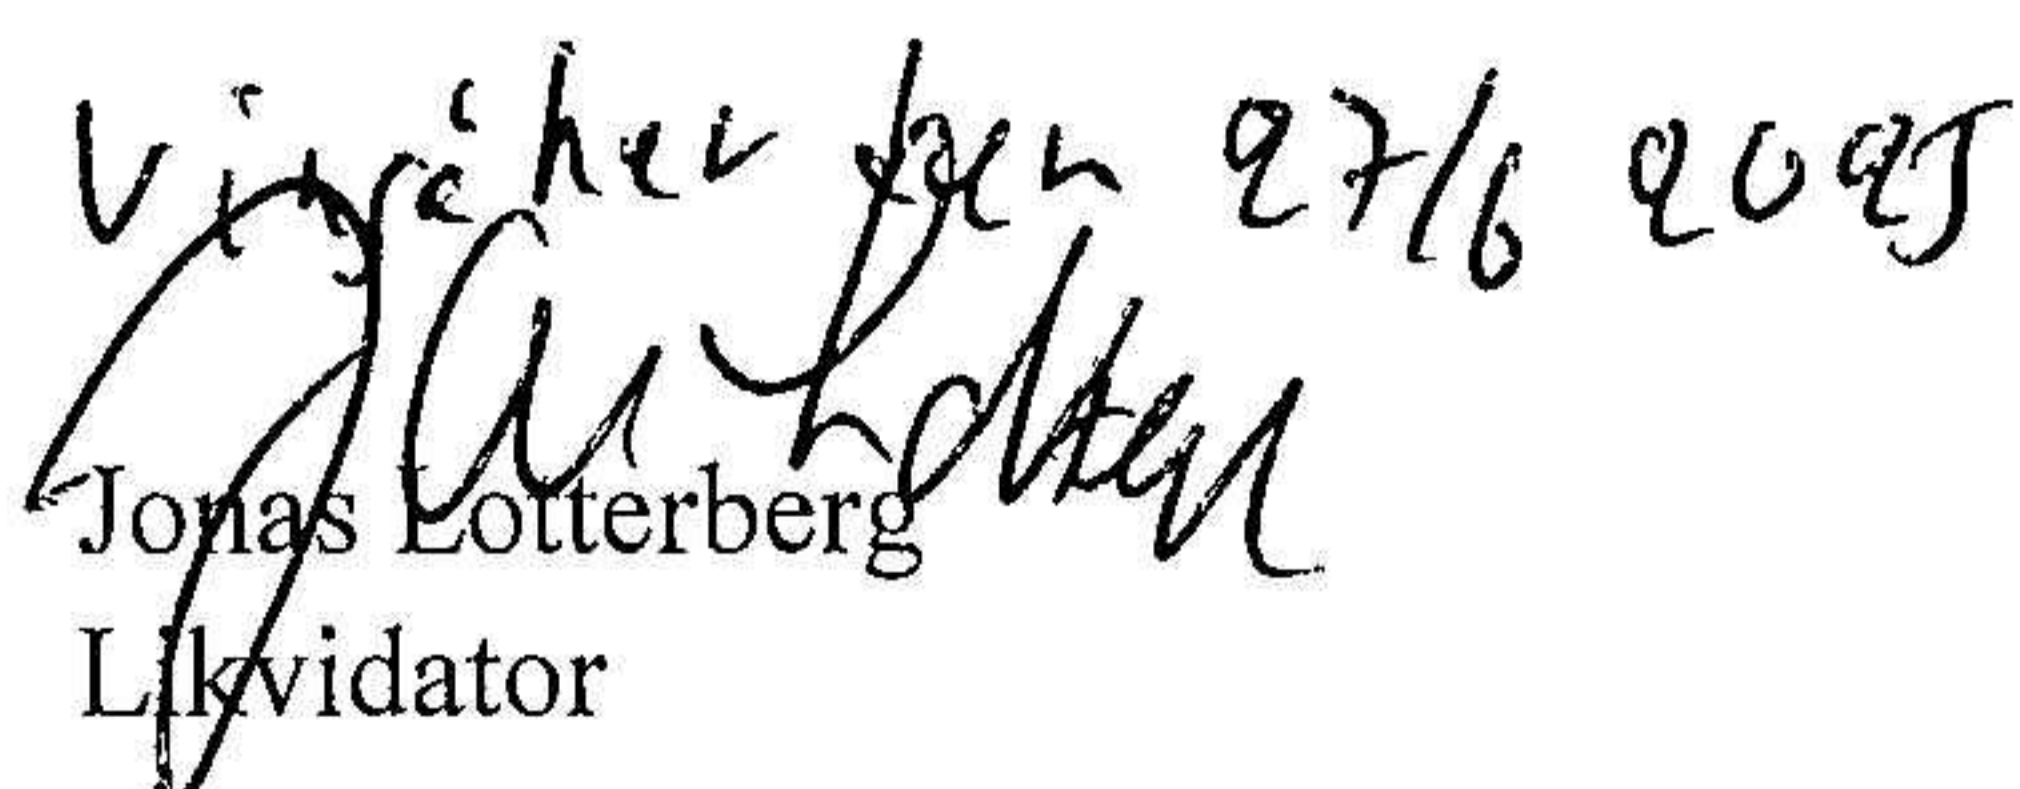 Vinåker den 27/6 2025
Jonas Lotterberg
Likvidator